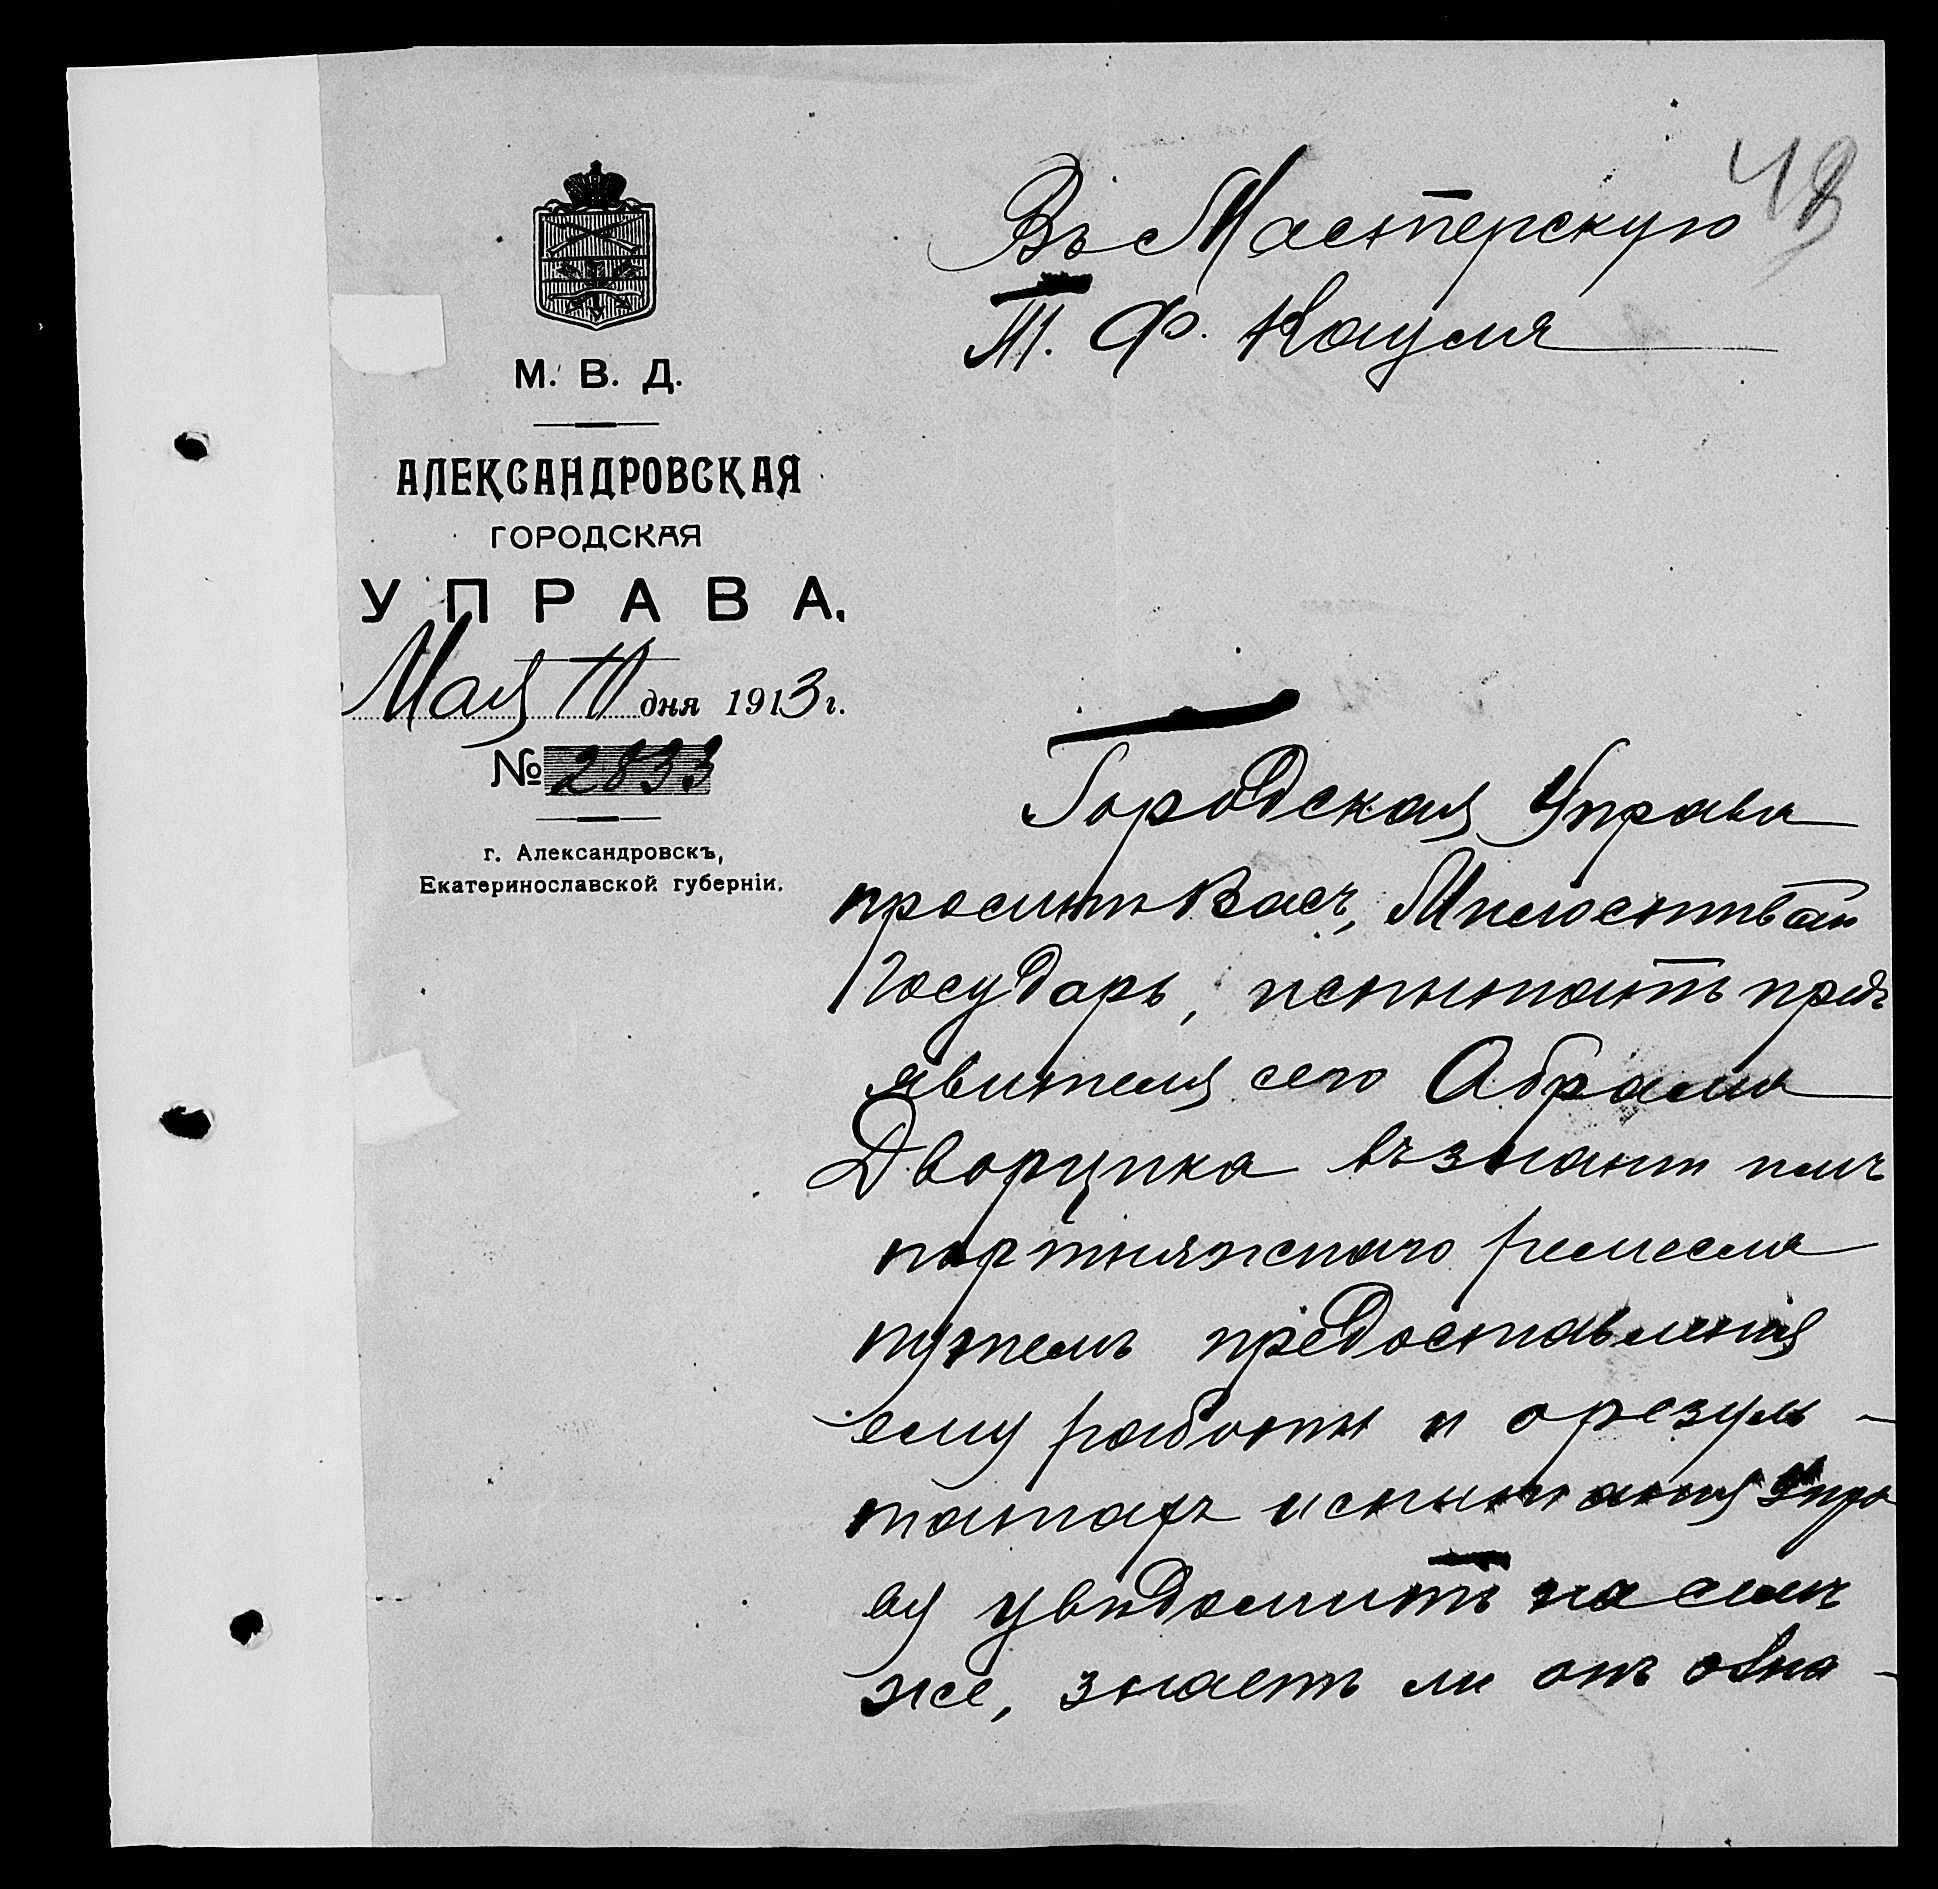 48
Въ Мастерскую
Т. Ф. Кауля
М. В. Д.
АЛЕКСАНДРОВСКАЯ
ГОРОДСКАЯ
УПРАВА.
Мая 10 дня 1913 г.
№ 2833
г. Александровскъ,
Екатеринославской губерніи.
Городская Управа
проситъ Васъ, Милостивый
Государь, испытать предъ
явителя сего Абрама
Дворцина въ знаніи имъ
портняжнаго ремесла
путемъ предоставленія
ему работы и о резуль-
татахъ испытанія Упра
ву увѣдомить на семъ
же, знаетъ ли онъ озна-